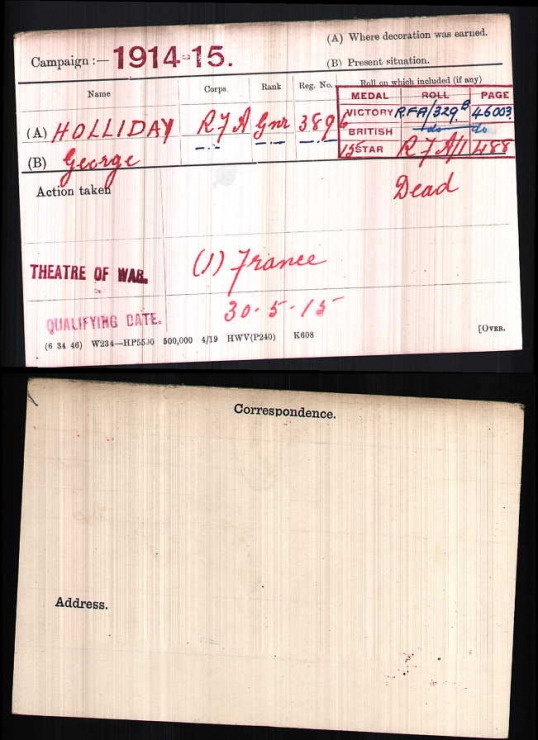 (A) Where decoration was earned.
Campaign :— 1914-15.
(B) Present situation.
Name Corps. Rank Reg. No. Roll on which included (if any)
MEDAL ROLL PAGE
(A) HOLLIDAY R F A Gnr 3896 VICTORY RFA/329B 46003
BRITISH do do
(B) George 15 STAR R F A/1 488
Action taken Dead
THEATRE OF WAR. (1) France
QUALIFYING DATE. 30-5-15
(6 34 46) W234—HP5590 500,000 4/19 HWV(P240) K608 [OVER.
Correspondence.
Address.